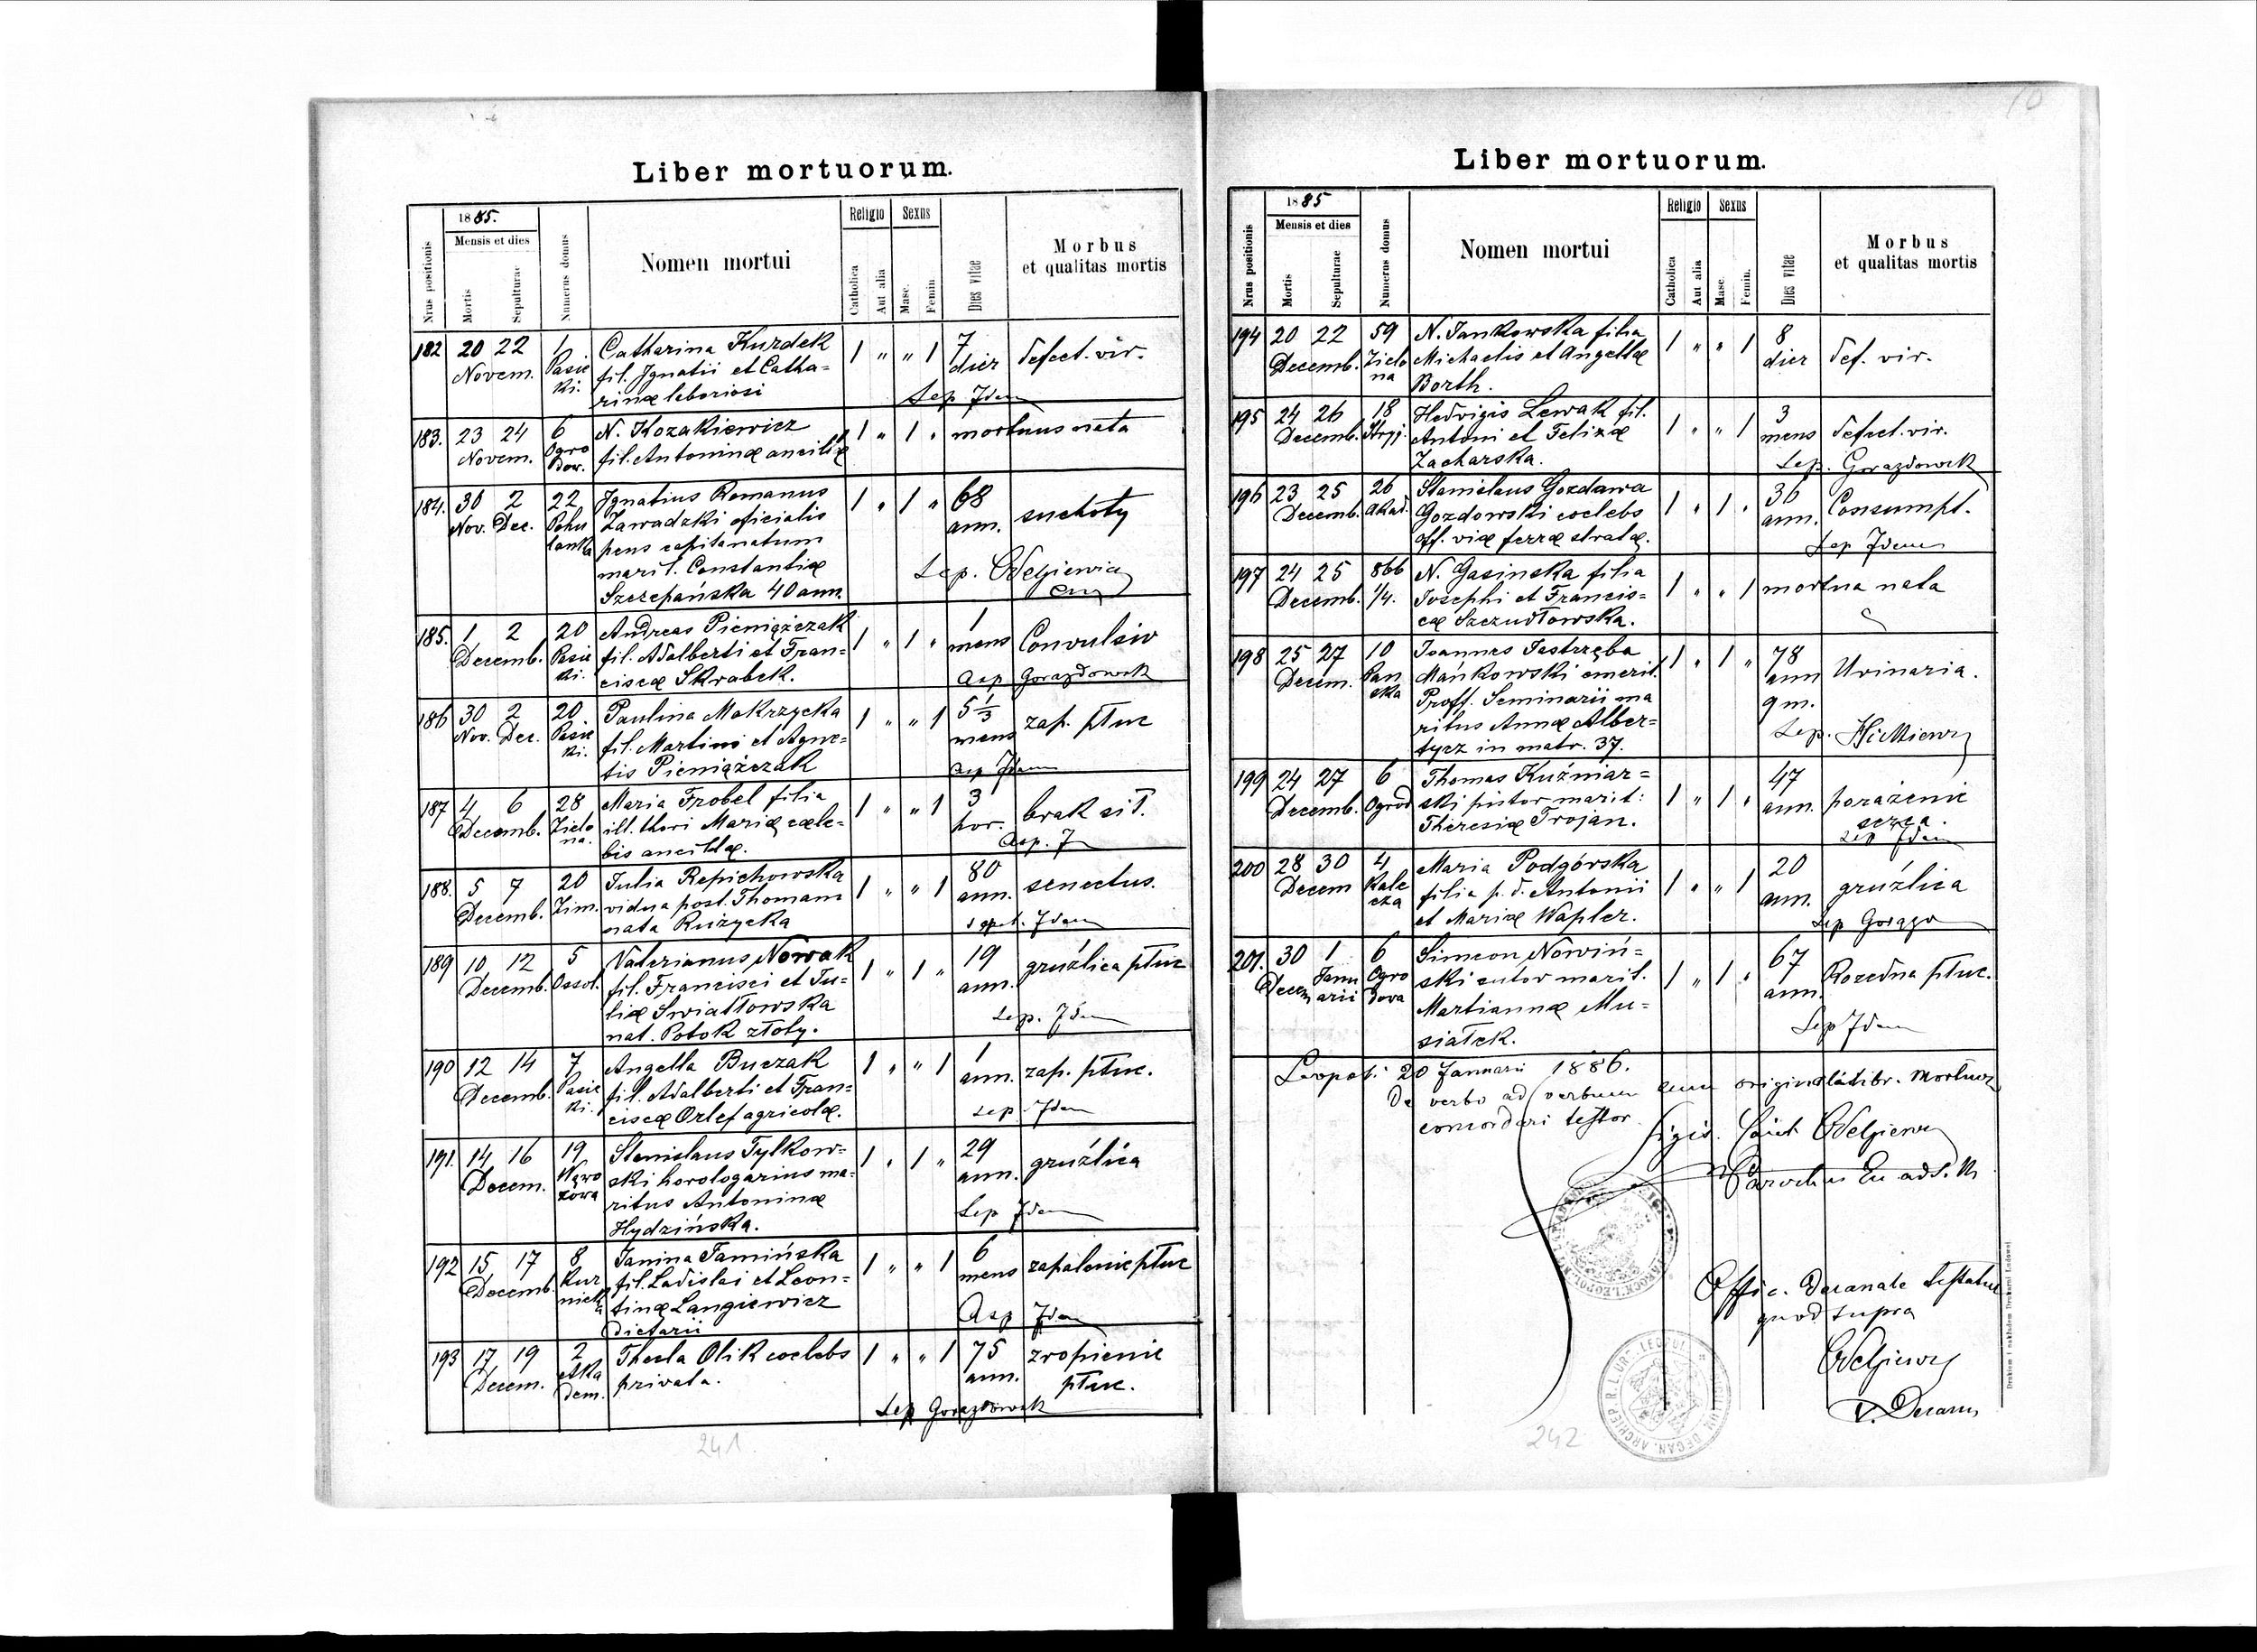 Liber mortuorum.
1885.
Mensis et dies
Religio Sexus
Nrus positionis
Mortis
Sepulturae
Numerus domus
Nomen mortui
Catholica
Aut alia
Masc.
Femin.
Dies vitae
Morbus
et qualitas mortis
182 20 22 1 Catharina Kurdek 1 " " 1 7 defect. vir.
Novem. Pasie fil. Ignatii et Catha= dier
ki. rinæ laboriosi
Sep Idem
183. 23 24 6 N. Kozakiewicz 1 " 1 " mortuus nata
Novem. Ogro fil. Antoninæ ancillæ
dow.
184. 30 2 22 Ignatius Romanus 1 " 1 " 68 suchoty
Nov. Dec. Pohu Zawadzki oficialis ann.
lanka pens capitanatum
marit. Constantiæ
Szczepańska 40 ann
Sep.
185. 1 2 20 Andreas Pieniążczak 1 " 1 " 1 Convulsiv
Decemb. Pasie fil. Adalberti et Fran= mens
ki. ciscæ Skrabek.
Asp Gorazdowsk
186 30 2 20 Paulina Mokrzycka 1 " " 1 5 1/3 zap. płuc
Nov. Dec. Pasie fil. Martini et Agne= mens
ki. tis Pieniążczak
Asp Idem
187 4 6 28 Maria Frobel filia 1 " " 1 3 brak sił.
Decemb. Zielo ill. thori Mariæ cæle= hor.
na. bis ancillæ.
Asp. I
188. 5 7 20 Julia Repichowska 1 " " 1 80 senectus.
Decemb. Zim. vidua post. Thomam ann.
nata Ruzycka
Idem
189 10 12 5 Valerianus Nowak 1 " 1 " 19 gruźlica płuc
Decemb. Ossol. fil. Francisci et Ju= ann.
liæ Swiatłowska
nat. Potok złoty.
Sep. Idem
190 12 14 7 Angella Buczak 1 " " 1 1 zap. płuc.
Decemb. Pasie fil. Adalberti et Fran= ann.
ki. ciscæ Orlef agricolæ.
Sep. Idem
191. 14 16 19 Stanislaus Tylkow= 1 " 1 " 29 gruźlica
Decem. Wąwo ski horologarius ma= ann.
zowa ritus Antoninæ
Hydzińska.
Sep Idem
192 15 17 8 Janina Tamińska 1 " " 1 6 zapalenie płuc
Decemb. Kur fil. Ladislai et Leon= mens
nicka tinæ Langiewicz
Dietarii
Asp Idem
193 17 19 2 Thecla Olik coelebs 1 " " 1 75 zropienie
Decem. Aka privata. ann. płuc.
dem.
Sep Gorazdowsk
241
Liber mortuorum.
1885
Mensis et dies
Religio Sexus
Nrus positionis
Mortis
Sepulturae
Numerus domus
Nomen mortui
Catholica
Aut alia
Masc.
Femin.
Dies vitae
Morbus
et qualitas mortis
194 20 22 59 N. Jankowska filia 1 " " 1 8 def. vir.
Decemb. Zielo Michaelis et Angellæ dier
na Borth.
195 24 26 18 Hedvigis Lewak fil. 1 " " 1 3 defect. vir.
Decemb. Stryj. Antoni et Felixæ mens
Zacharska.
Sep. Gorazdowsk
196 23 25 26 Stanislaus Gozdawa 1 " 1 " 36 Consumpt.
Decemb. Akad. Gozdowski coelebs ann.
off. viæ ferræ stratæ.
Sep Idem
197 24 25 866 N. Gasinska filia 1 " " 1 mortua nata
Decemb. 1/4. Josephi et Francis=
cæ Szczudłowska.
198 25 27 10 Joannes Jastrzęba 1 " 1 " 78 Urinaria.
Decem. Pan Mańkowski emerit. ann
ska Proff. Seminarii ma 9 m.
ritus Annæ Alber=
tycz in matr. 37.
Sep.
199 24 27 6 Thomas Kuźniar= 1 " 1 " 47 porażenie
Decemb. Ogrod ski pistor marit: ann. serca.
Theresiæ Trojan.
Sep Idem
200 28 30 4 Maria Podgórska 1 " " 1 20 gruźlica
Decem Kale filia p. d. Antonii ann.
cza et Mariæ Wapler.
Sep Gorazd
201. 30 1 6 Simeon Nowiń= 1 " 1 " 67 Rozedma płuc.
Decem Janu Ogro ski sutor marit. ann.
arii dova Martiannæ Mu=
siałek.
Sep Idem
Leopoli 20 Januarii 1886.
De verbo ad verbum cum originali Libr. Mortuor
concordari testor
Offic. Decanale testatur
quod supra
V. Decanus
242
Drukiem i nakładem Drukarni Ludowej